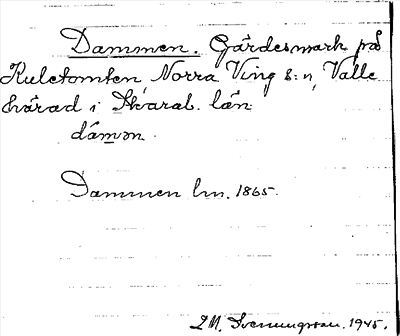 Dammen. Gärdesmark på
Kuletomten, Norra Ving s:n, Valle
härad i Skarab. län
dámǝn
Dammen lm. 1865.
1945.